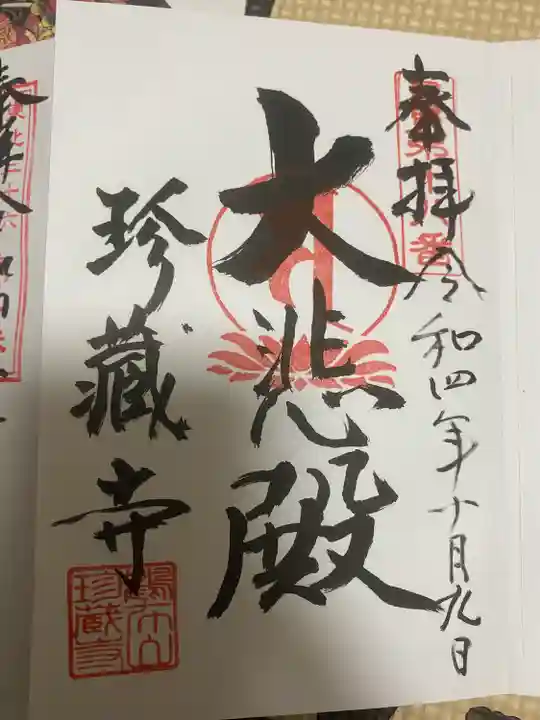 奉拝 令和四年十月九日
大悲殿
珍蔵寺